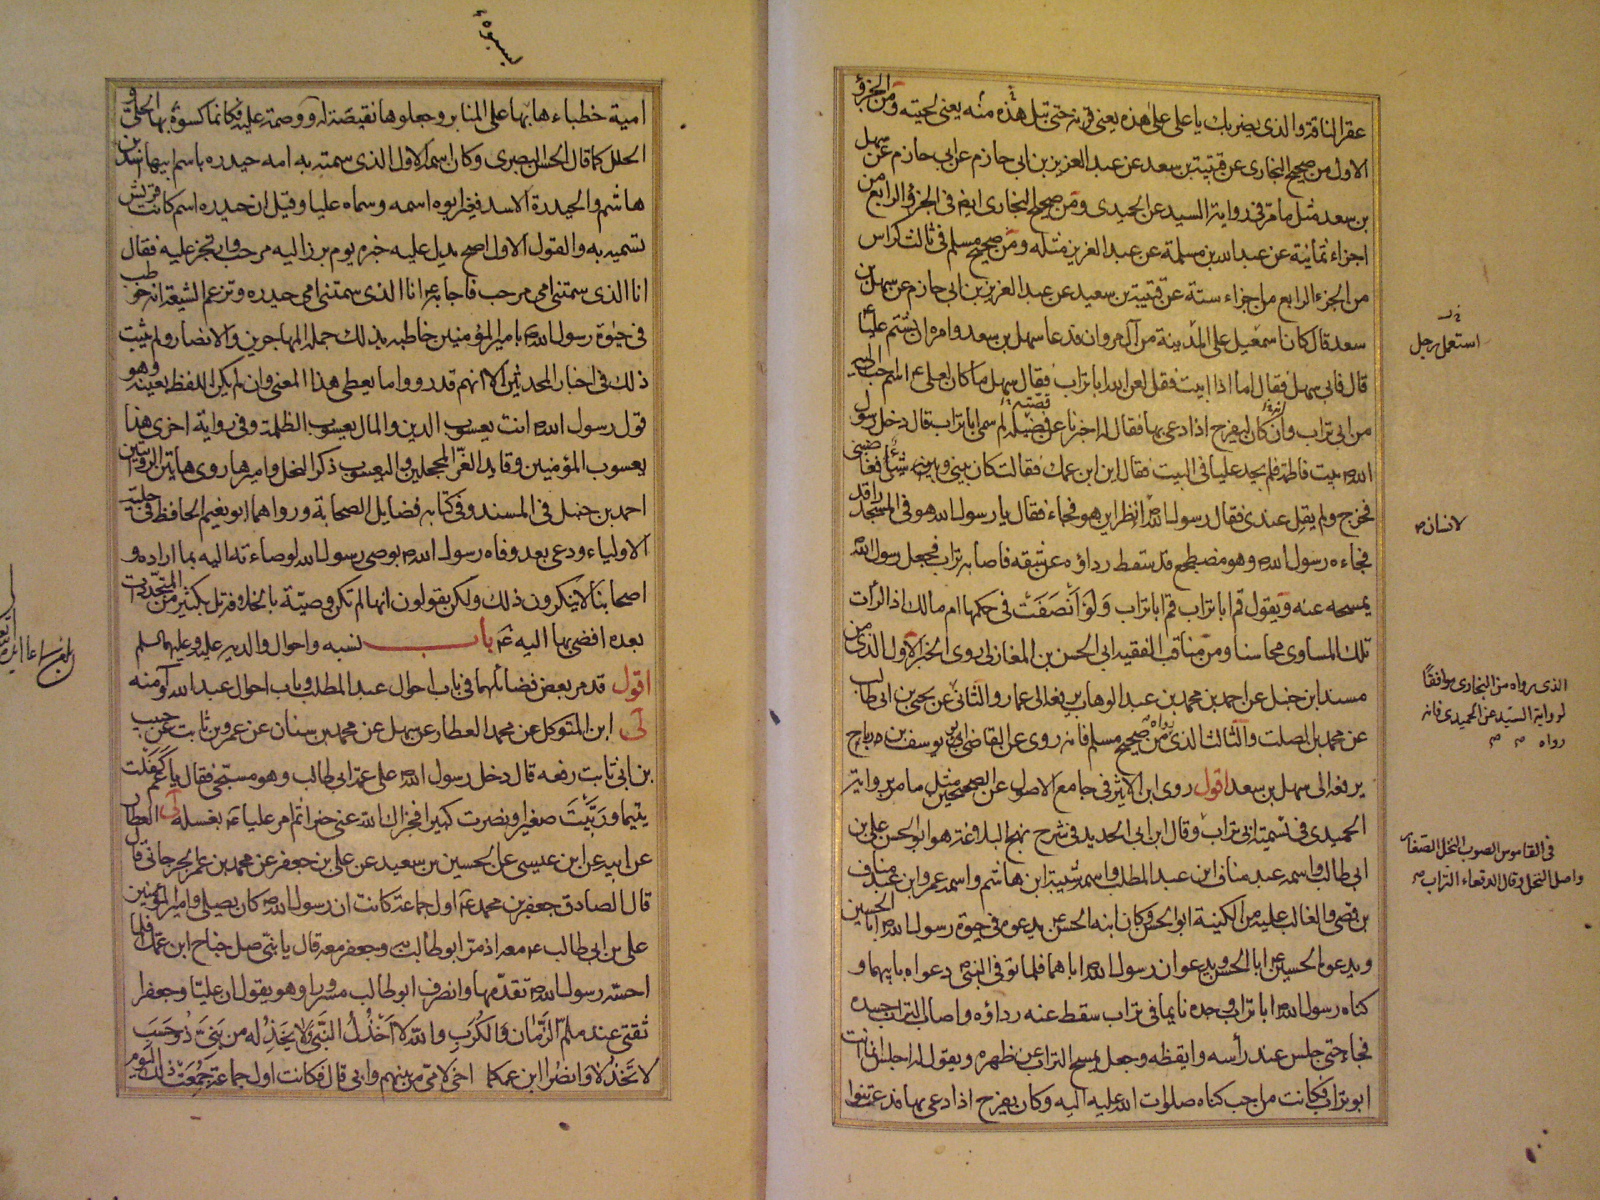 عقر الناقة والذى يضربك يا على على هذه يعنى قرنه حتى تبل هذه منه يعنى لحيته ومن الجزؤ
الاول من صحيح البخارى عن قتيبة بن سعد عن عبد العزيز بن ابى حازم عن ابى حازم عن سهل
بن سعد مثل ما مر فى رواية السيد عن الحميدى ومن صحيح البخارى ايضم فى الجزؤ الرابع من
اجزاء ثمانية عن عبد الله بن مسلمة عن عبد العزيز مثله ومن صحيح مسلم فى ثالث كراس
من الجزء الرابع من اجزاء ستة عن قتيبة بن سعيد عن عبد العزيز بن ابى حازم عن سهل بن
سعد قال كان اسمعيل على المدينة من آل مروان فدعا سهل بن سعد وامره ان يشتم عليا
قال فابى سهل فقال اما اذا ابيت فقل لعن الله ابا تراب فقال سهل ما كان لعلى ع اسم احب اليه
من ابى تراب وان كان ليفرح اذا دعى بها فقال له اخبرنا عن قصته لم سمى ابا تراب قال دخل رسول
الله ص بيت فاطمة فلم يجد عليا فى البيت فقال اين ابن عمك فقالت كان بينى وبينه شئ فغاضبنى
فخرج ولم يقل عندى فقال رسول الله ص انظر اين هو فجاء فقال يا رسول الله هو فى المسجد راقد
فجاءه رسول الله ص وهو مضطجع قد سقط رداؤه عن شقه فاصابه تراب فجعل رسول الله
يمسحه عنه ويقول قم ابا تراب قم ابا تراب ولو انصفت فى حكمها ام مالك اذا لرأت
تلك المساوى محاسنا ومن مناقب الفقيه ابى الحسن بن المغازلى روى الخبر الاول الذى من
مسند ابن حنبل عن احمد بن محمد بن عبد الوهاب يرفعه الى عمار والثانى عن يحيى بن ابى طالب
عن محمد بن الصلت والثالث الذى رواه من صحيح مسلم فانه روى عن القاضى ابى يوسف بن رباح
يرفعه الى سهل بن سعد اقول روى ابن الاثير فى جامع الاصول عن الصحيحين مثل ما مر برواية
الحميدى فى تسميته ابى تراب وقال ابن ابى الحديد فى شرح نهج البلاغة هو ابو الحسن على بن
ابى طالب واسمه عبد مناف ابن عبد المطلب واسمه شيبة ابن هاشم واسمه عمرو ابن عبد مناف
بن قصى والغالب عليه من الكنية ابو الحسن وكان ابنه الحسن يدعوه فى حيوة رسول الله ص ابا الحسين
ويدعوه الحسين ابا الحسن ويدعوان رسول الله ص اباهما فلما توفى النبى ص دعواه بابيهما و
كناه رسول الله ص ابا تراب وجده نايما فى تراب سقط عنه رداؤه واصاب التراب جسده
فجاء حتى جلس عند رأسه وايقظه وجعل يمسح التراب عن ظهره ويقول له اجلس انما انت
ابو تراب فكانت من احب كناه صلوات الله عليه اليه وكان يفرح اذا دعى بها فدعت بنوا
استعمل رجل
لانسان ص
الذى رواه من البخارى موافقا
لرواية السيد عن الحميدى فانه
رواه
فى القاموس اليعسوب النحل
واصل النحل وقال الدقعاء التراب
امية خطباءها بها على المنابر وجعلوها نقيصة له ووصمة عليه فكانما كسوه بها الحلى و
الحلل كما قال الحسن البصرى وكان اسمه الاول الذى سمته به امه حيدره باسم ابيها اسد بن
هاشم والحيدرة الاسد فغير ابوه اسمه وسماه عليا وقيل ان حيدره اسم كانت قريش
تسميه به والقول الاول اصح يدل عليه خبره يوم برز اليه مرحب وارتجز عليه فقال
انا الذى سمتنى امى مرحب فاجابه ع انا الذى سمتنى امى حيدره وتزعم الشيعة انه خوطب
فى حيوة رسول الله ص بامير المؤمنين خاطبه بذلك جملة المهاجرين والانصار ولم يثبت
ذلك فى اخبار المحدثين الا انهم قد رووا ما يعطى هذا المعنى وان لم يكن اللفظ بعينه وهو
قول رسول الله ص انت يعسوب الدين والمال يعسوب الظلمة وفى رواية اخرى هذا
يعسوب المؤمنين وقايد الغر المحجلين واليعسوب ذكر النحل واميرها روى هاتين الروايتين
احمد بن حنبل فى المسند وفى كتابه فضايل الصحابة ورواهما ابو نعيم الحافظ فى حلية
الاولياء ودعى بعد وفاة رسول الله ص بوصى رسول الله لوصايته اليه بما اراده و
اصحابنا لا ينكرون ذلك ولكن يقولون انها لم تكن وصية بالخلافة بل بكثير من المتجددات
بعده افضى بها اليه ع باب نسبه واحوال والديه عليه وعليهما السلم
اقول قد مر بعض فضائلهما فى باب احوال عبد المطلب وباب احوال عبد الله وآمنه
لى ابن المتوكل عن محمد العطار عن سهل عن محمد بن سنان عن عمرو بن ثابت عن حبيب
بن ابى ثابت رفعه قال دخل رسول الله ص على عمه ابى طالب وهو مسجى فقال يا عم كفلت
يتيما وربيت صغيرا ونصرت كبيرا فجزاك الله عنى خيرا ثم امر عليا ع بغسله لى العطار
عن ابيه عن ابن عيسى عن الحسين بن سعيد عن على بن جعفر عن محمد بن عمر الجرجانى قال
قال الصادق جعفر بن محمد ع اول جماعة كانت ان رسول الله ص كان يصلى وامير المؤمنين
على بن ابى طالب ع معه اذ مر ابو طالب به وجعفر معه قال يا بنى صل جناح ابن عمك فلما
احسه رسول الله ص تقدمهما وانصرف ابو طالب مسرورا وهو يقول ان عليا وجعفرا
ثقتى عند ملم الزمان والكرب والله لا اخذل النبى ولا يخذله من بنى ذو حسب
لا تخذلا وانصرا ابن عمكما اخى لامى من بينهم وابى قال فكانت اول جماعة جمعت ذلك اليوم